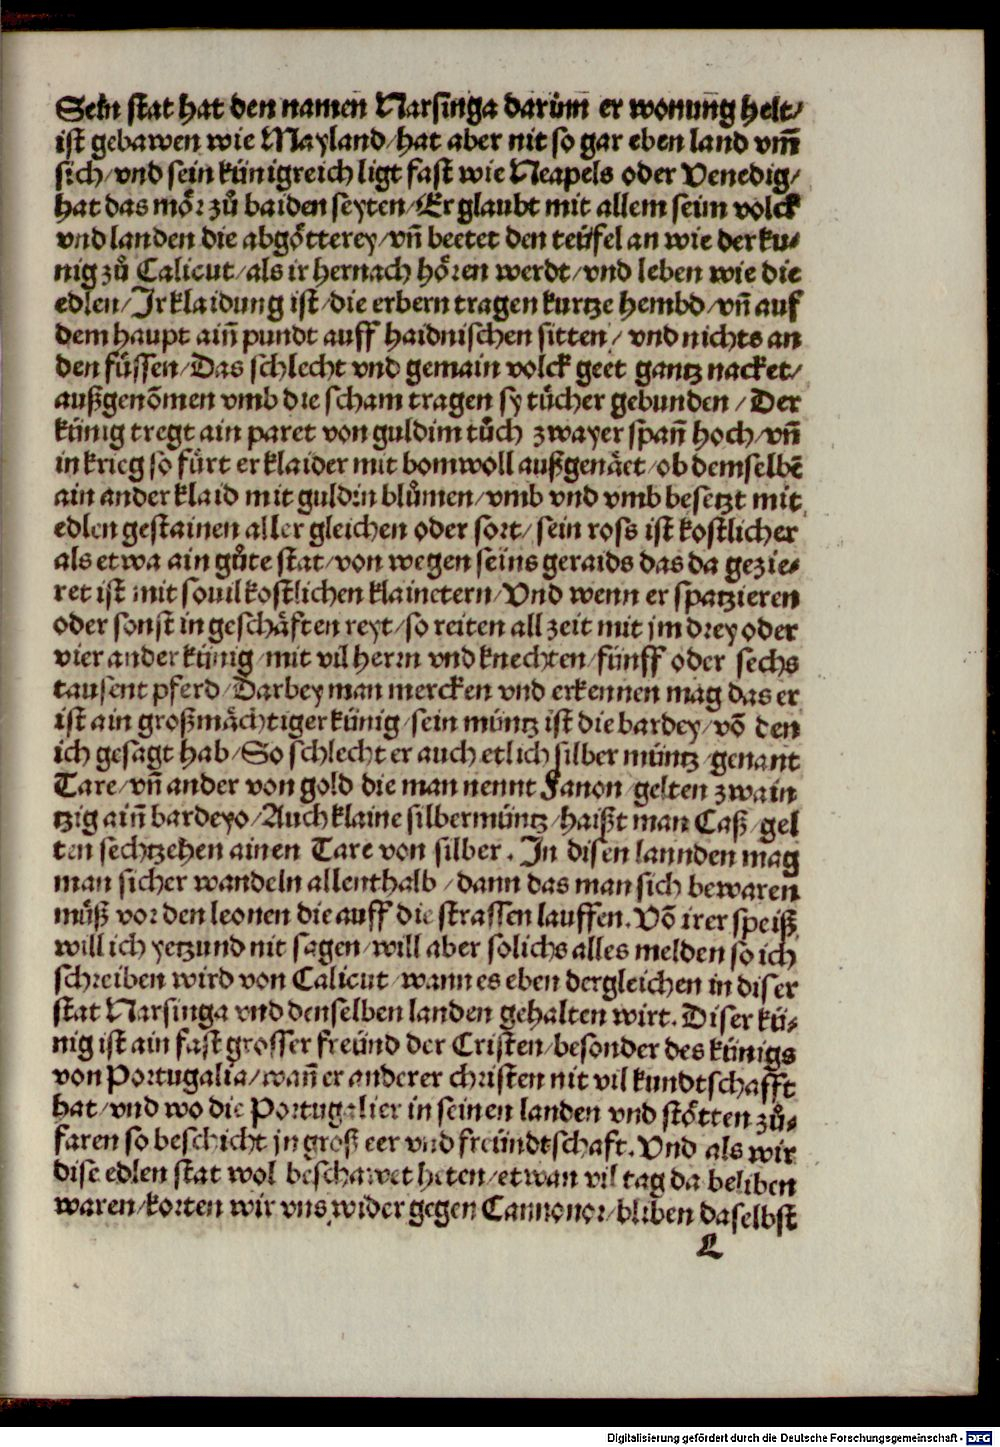 Sein stat hat den namen Narsinga darūm er wonung helt/
ist gebawen wie Mayland/hat aber nit so gar eben land vm̄
sich/vnd sein künigreich ligt fast wie Neapels oder Venedig/
hat das mör zů baiden seyten/Er glaubt mit allem seim volck
vnd landen die abgötterey/vn̄ beetet den teüfel an wie der kü-
nig zů Calicut/als ir hernach hören werdt/vnd leben wie die
edlen/Ir klaidung ist/die erbern tragen kurtze hembd/vn̄ auf
dem haupt ain̄ pundt auff haidnischen sitten/vnd nichts an
den füssen/Das schlecht vnd gemain volck geet gantz nacket/
außgenōmen vmb die scham tragen sy tücher gebunden/Der
künig tregt ain paret von guldim tůch zwayer span̄ hoch/vn̄
in krieg so fürt er klaider mit bomwoll außgenäet/ob demselbē
ain ander klaid mit guldin blůmen/vmb vnd vmb besetzt mit
edlen gestainen aller gleichen oder sort/sein ross ist kostlicher
als etwa ain gůte stat/von wegen seins geraids das da gezie-
ret ist mit souil kostlichen klainetern/Vnd wenn er spatzieren
oder sonst in geschäften reyt/so reiten all zeit mit jm drey oder
vier ander künig/mit vil herrn vnd knechten/fünff oder sechs
tausent pferd/Darbey man mercken vnd erkennen mag das er
ist ain großmächtiger künig/sein müntz ist die bardey/vō den
ich gesagt hab/So schlecht er auch etlich silber müntz/genant
Tare/vn̄ ander von gold die man nennt Fanon/gelten zwain
tzig ain̄ bardeyo/Auch klaine silbermüntz/haißt man Caß/gel
ten sechtzehen ainen Tare von silber. In disen lannden mag
man sicher wandeln allenthalb/dann das man sich bewaren
můß vor den leonen die auff die strassen lauffen. Vō irer speiß
will ich yetzund nit sagen/will aber solichs alles melden so ich
schreiben wird von Calicut/wann es eben dergleichen in diser
stat Narsinga vnd denselben landen gehalten wirt. Diser kü-
nig ist ain fast grosser freünd der Cristen/besonder des künigs
von Portugalia/wan̄ er anderer christen nit vil kundtschafft
hat/vnd wo die Portugalier in seinen landen vnd stötten zů-
faren so beschicht jn groß eer vnd freündtschaft. Vnd als wir
dise edlen stat wol beschawet heten/etwan vil tag da beliben
waren/korten wir vns wider gegen Cannonor/bliben daselbst
L
Digitalisierung gefördert durch die Deutsche Forschungsgemeinschaft - DFG